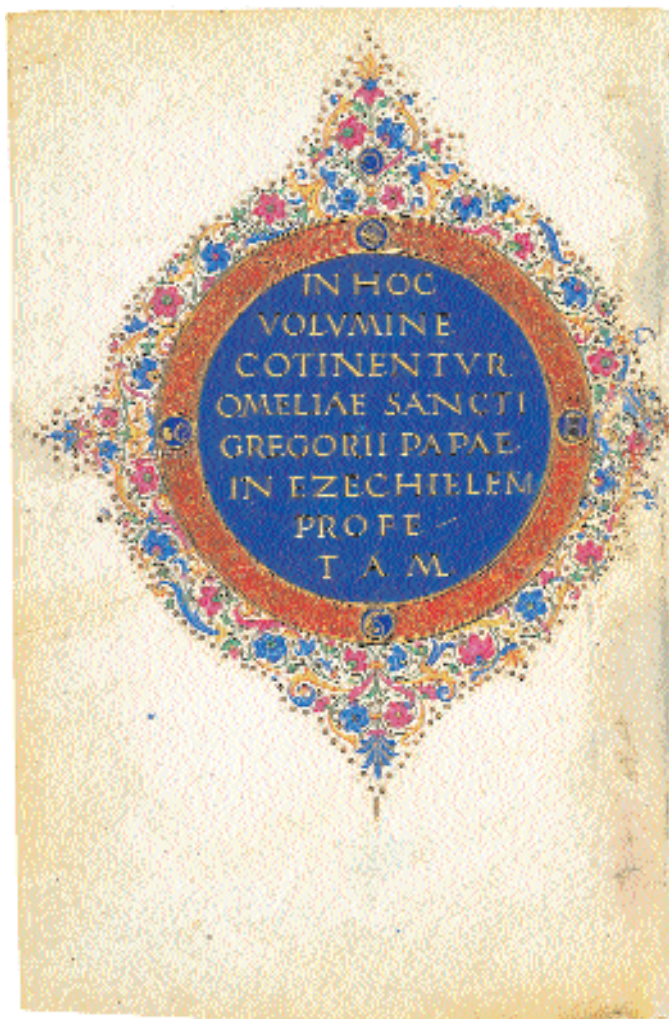 IN HOC
VOLVMINE
COTINENTVR.
OMELIAE SANCTI
GREGORII PAPAE
IN EZECHIELEM
PROFE-
TAM.